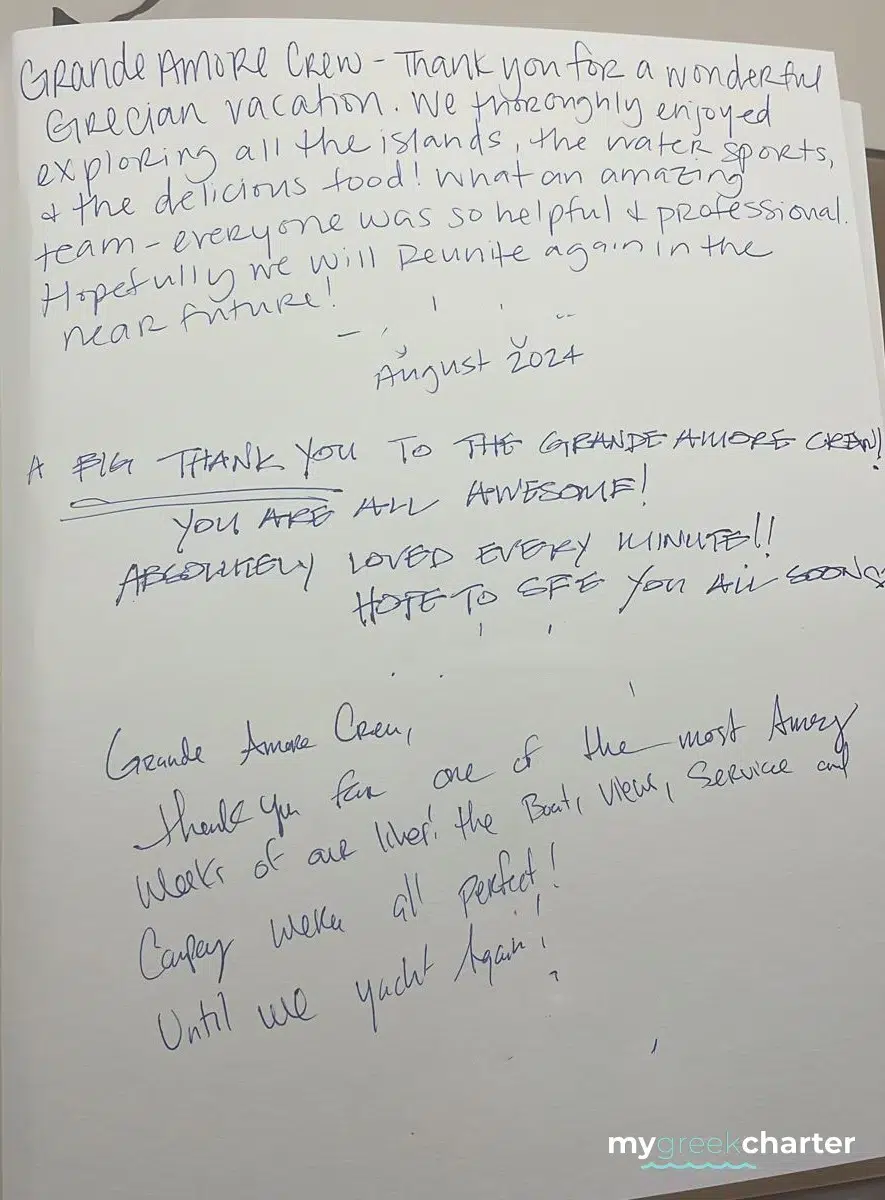 Grande Amore Crew - Thank you for a wonderful
Grecian vacation. We thoroughly enjoyed
exploring all the islands, the water sports,
& the delicious food! What an amazing
team - everyone was so helpful & professional.
Hopefully we will Reunite again in the
near future!
August 2024
A BIG THANK YOU TO THE GRANDE AMORE CREW!
YOU ARE ALL AWESOME!
ABSOLUTELY LOVED EVERY MINUTE!!
HOPE TO SEE YOU ALL SOON
Grande Amore Crew,
Thank you for one of the most
Weeks of our lives! the Boat, Views, Service and
were all perfect!
Until we yacht Again!
mygreekcharter